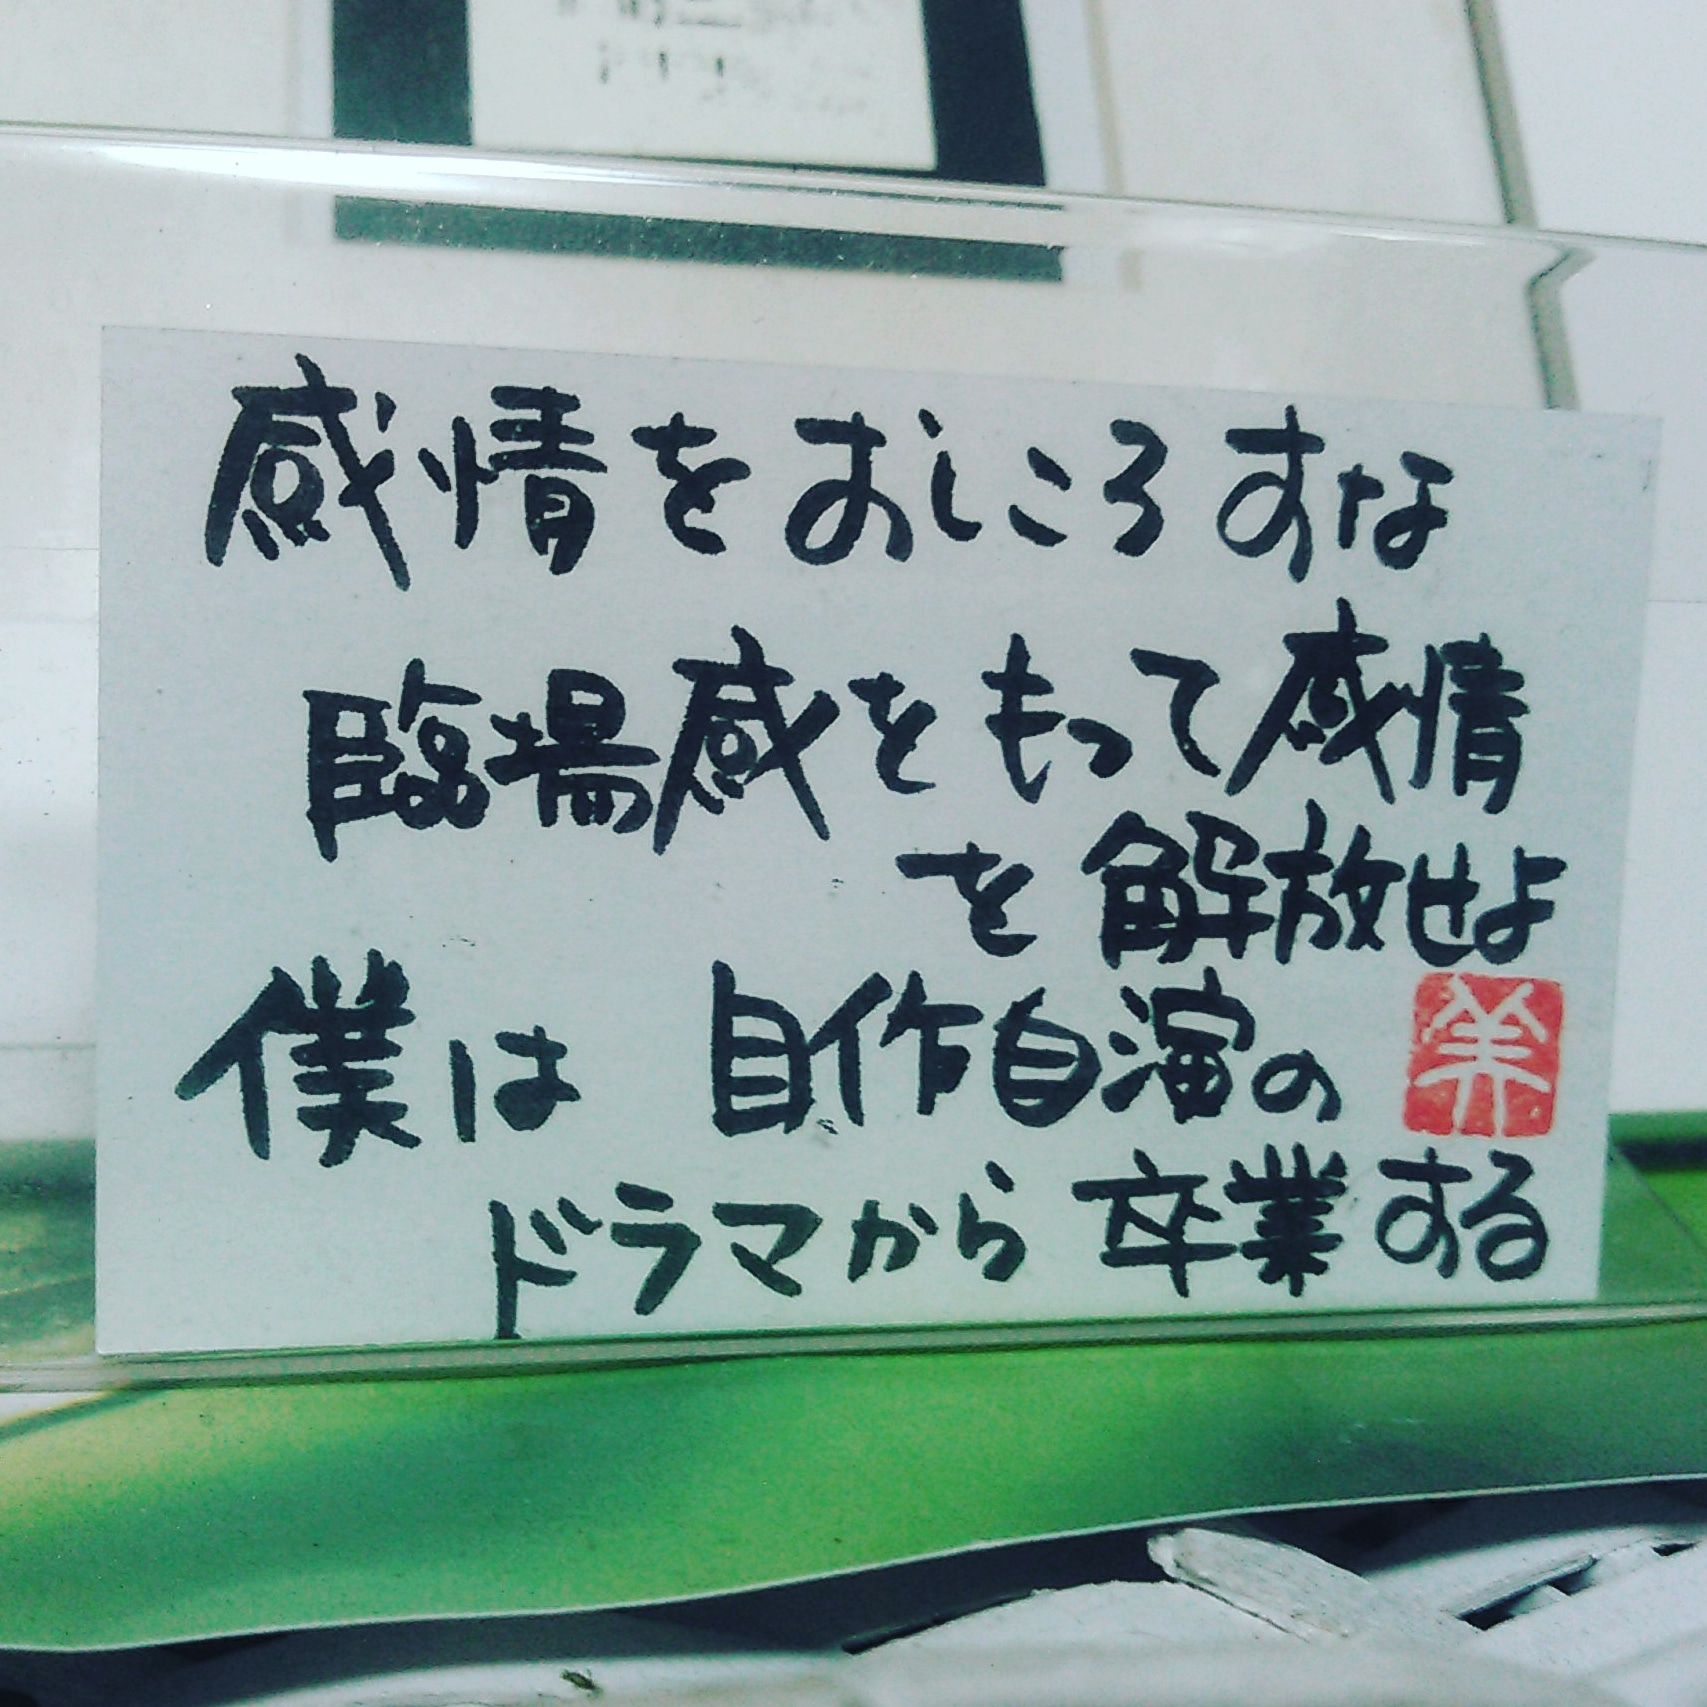 感情をおしころすな
臨場感をもって感情
を解放せよ
僕は 自作自演の
ドラマから卒業する